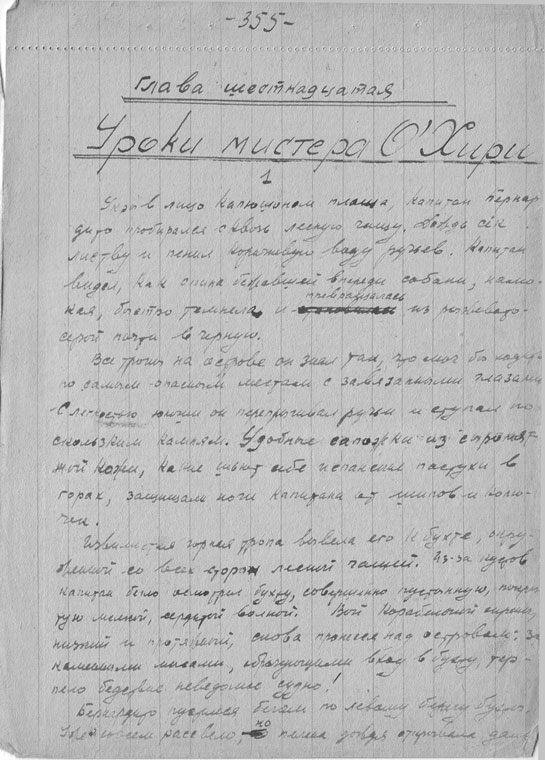 -355-
Глава шестнадцатая
Уроки мистера О'Хири
1
Укрыв лицо капюшоном плаща, капитан Бернар
дито пробирался сквозь лесную чащу. Дождь сёк
листву и пенил коричневую воду ручьев. Капитан
видел, как спина бежавшей впереди собаки, намо-
кая, быстро темнела и превращалась из розовато-
серой почти в черную.
Все тропы на острове он знал так, что мог бы
по самым опасным местам с завязанными глазами
С легкостью юноши он перепрыгивал ручьи и ступал по
скользким камням. Удобные сапожки из сыромят-
ной кожи, какие шьют себе испанские пастухи в
горах, защищали ноги капитана от шипов и колю-
чек.
Извилистая горная тропа вывела его к бухте, окру-
женной со всех сторон лесной чащей. Из-за кустов
капитан бегло осмотрел бухту, совершенно пустынную, покры
тую мелкой, сердитой волной. Вой корабельной сирены,
низкий и протяжный, снова пронесся над островом: за
каменными мысами, образующими вход в бухту, тер-
пело бедствие неведомое судно!
Бернардито пустился бегом по левому берегу бухты.
Уже совсем рассвело, но пелена дождя скрывала даль